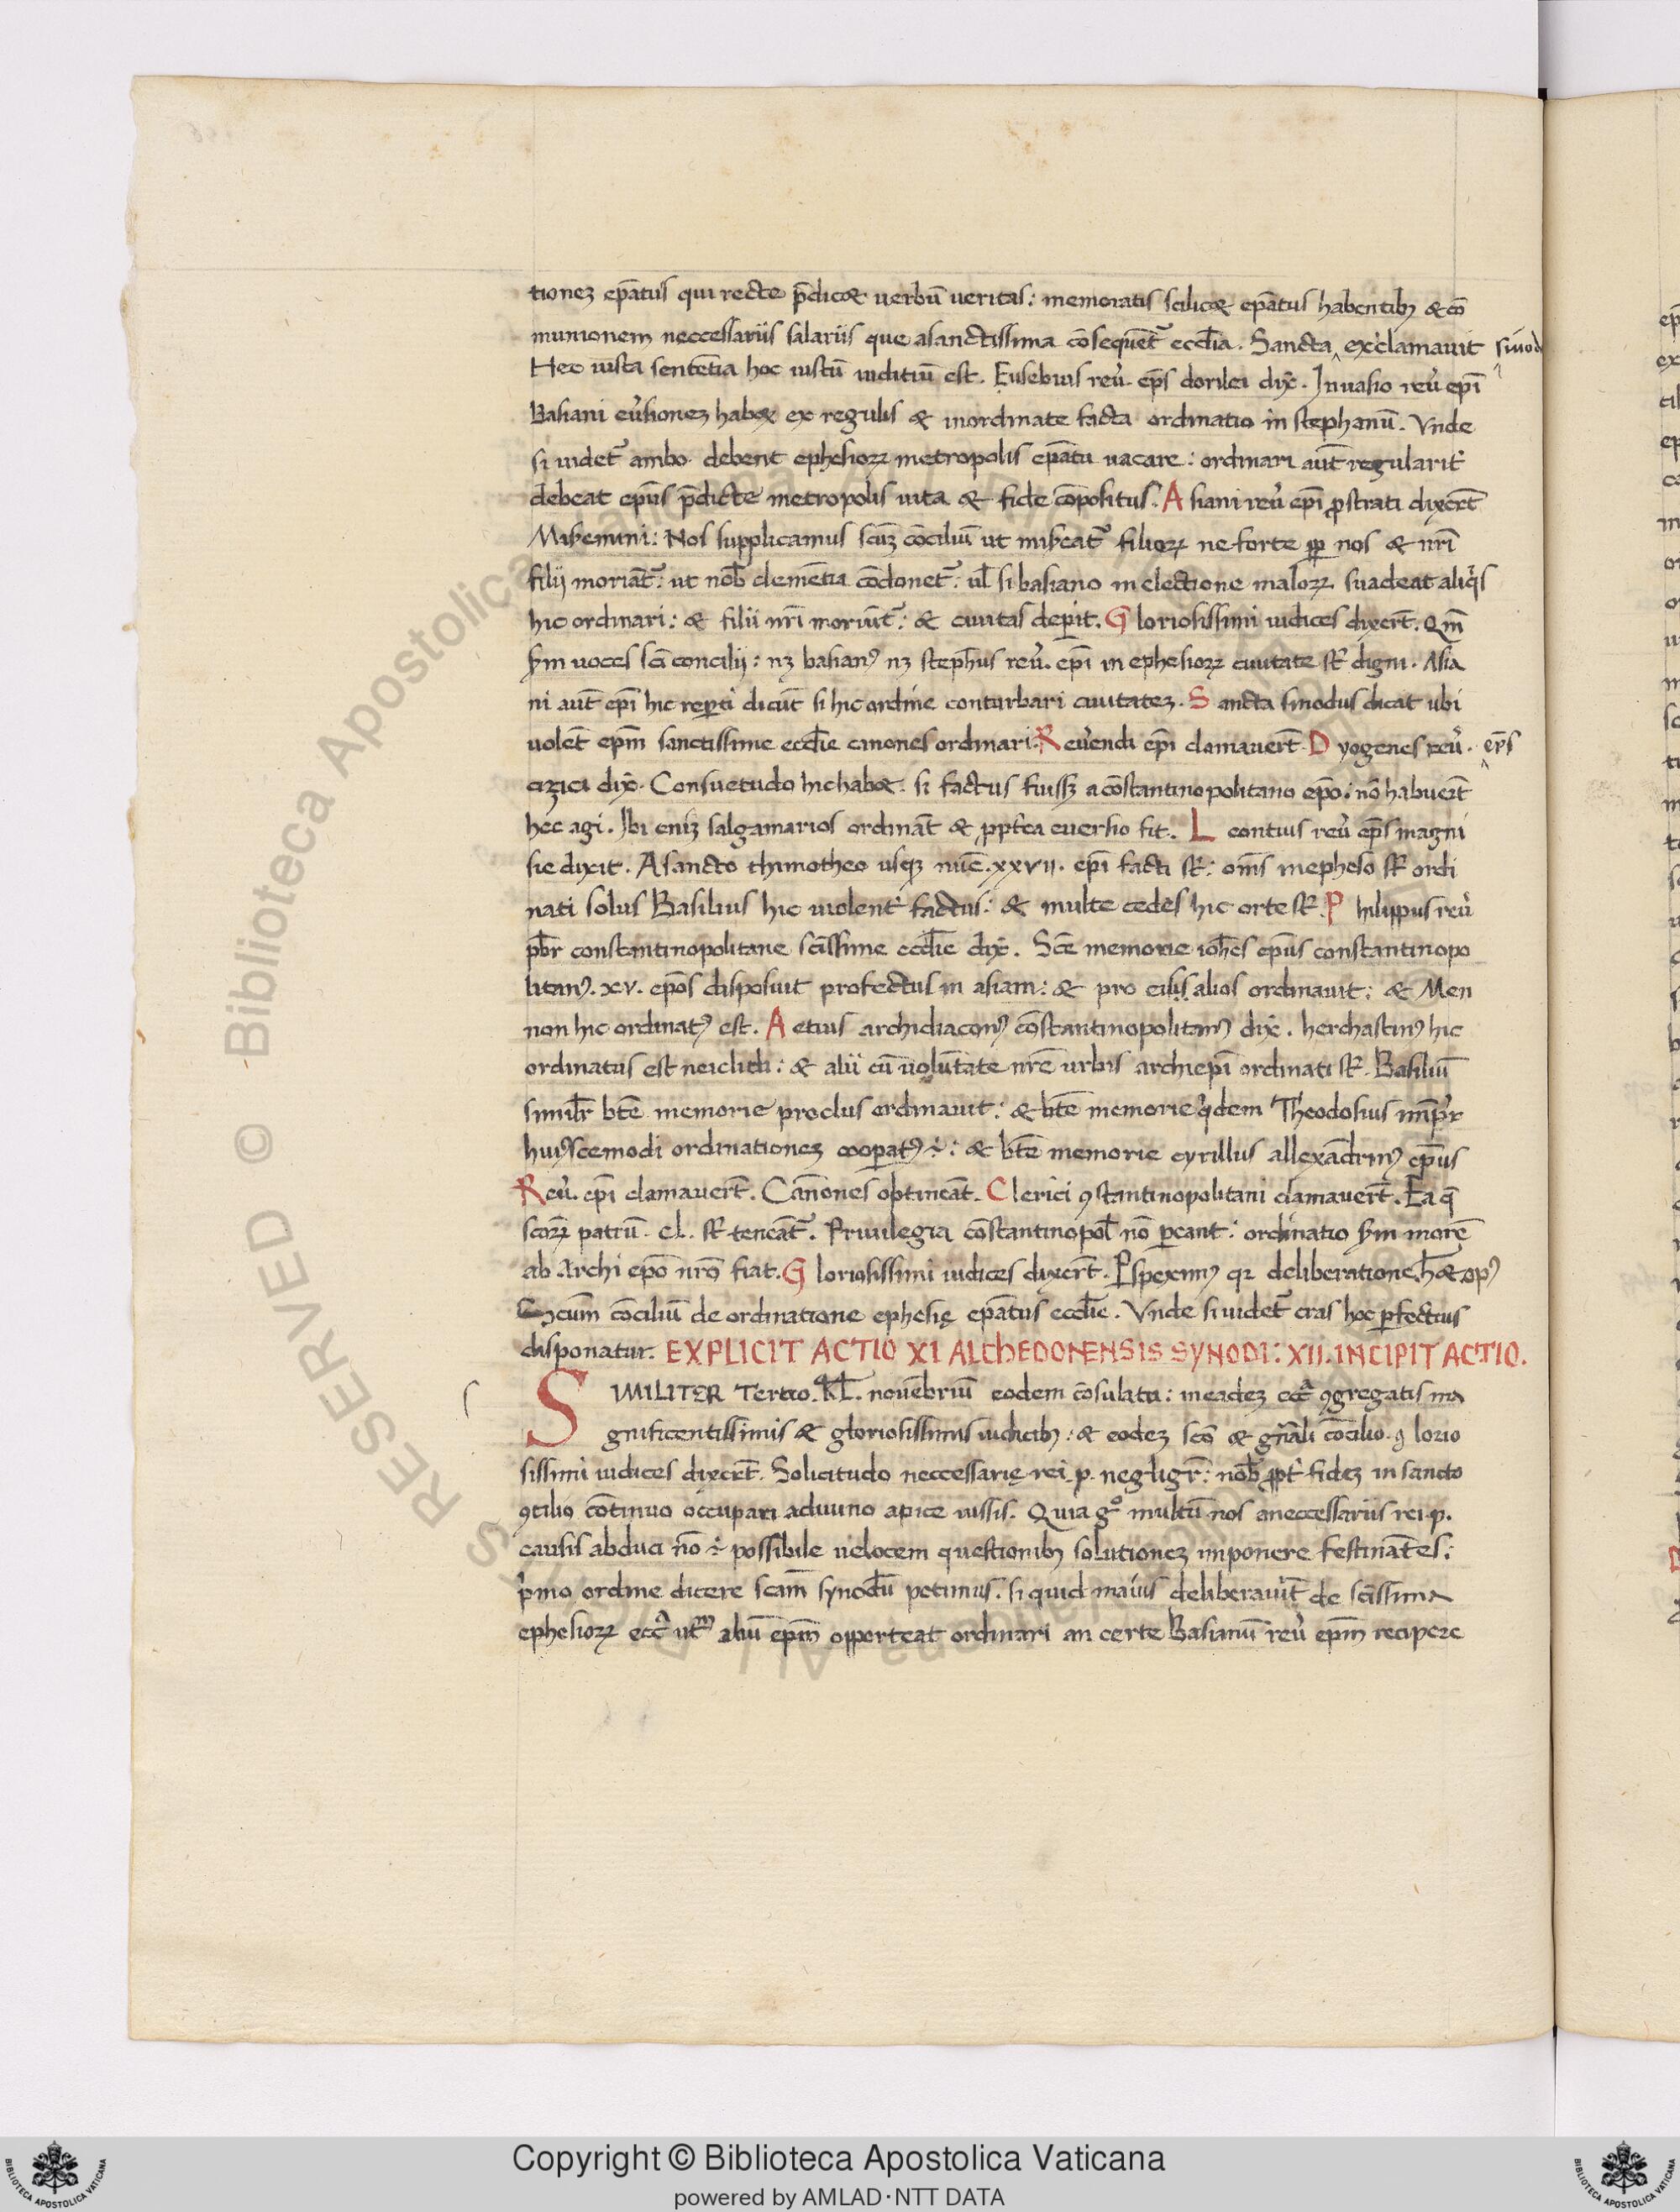 tionez ep̄atus qui recte p̄dicet uerbū ueritas: memoratis scilicet ep̄atus habentibꝫ et cō
munionem neccessariis salariis que a sanctissima cōsequent᷑ ecclīa. Sancta ^ exclamauit sinod
Hec iusta sententia hoc iustū iuditiū est. Eusebius reu̓. ep̄s dorilei dix̓. Inuasio reu̓ ep̄i
Basiani eu̓sionez habet ex regulis et inordinate facta ordinatio in stephanū. Vnde
si uidet᷑ ambo debent ephesioꝝ metropolis ep̄atu uacare: ordinari aūt regularit̓
debeat ep̄us p̄dicte metropolis uita et fide cōpositus. Asiani reu̓ ep̄i ꝓstrati dixer̄t
Misemini: Nos supplicamus scūz cōciliū ut miseat᷑ filioꝝ ne forte ꝓꝑ nos et nr̄i
filij moriāt᷑: ut nob̄ clemētia cōdonet᷑: ul̄ si basiano in electione maloꝝ suadeat aliq̓s
hic ordinari: et filii nr̄i moriūt᷑: et ciuitas deꝑit. Gloriosissimi iudices dixer̄t. Qm̄
s̄m uoces sc̄i concilij: nꝫ basianꝰ nꝫ steph̄us reu̓. ep̄i in ephesioꝝ ciuitate st̄ digni. Asia
ni aūt ep̄i hic reꝑti dicūt si hic ordine conturbari ciuitatez. Sancta sinodus dicat ubi
uolēt ep̄m sanctissime eccl̄ie canones ordinari. Reu̓endi ep̄i clamauer̄t. Dyogenes reu̓. ^ ep̄s
cizici dix̓. Consuetudo hic habet. si factus fuissꝫ a cōstantinopolitano ep̄o: nō habuer̄t
hec agi. Ibi eniz salgamarios ordināt et ꝓpt̓ea euersio fit. Leontius reu̓ ep̄s magni
sie dixit. A sancto thimotheo usqꝫ nūc. xxvii. ep̄i facti st̄: om̄s in epheso st̄ ordi
nati solus Basilius hic uiolent̓ factus: et multe cedes hic orte st̄. Philippus reu̓
pb̄r constantinopolitane sc̄issime eccl̄ie dix̓. Sc̄e memorie ioh̄es ep̄us constantinopo
litanꝰ. xv. ep̄os disposuit profectus in asiam: et pro eis alios ordinauit: et Men
non hic ordinatꝰ est. Aetius archidiaconꝰ cōstantinopolitanꝰ dix̓. herchastinꝰ hic
ordinatus est neiclidi: et alii cū uolūtate nr̄e urbis archiep̄i ordinati st̄. Basiliū
simil̄r bt̄e memorie proclus ordinauit: et bt̄e memorie q̓dem Theodosius imp̄r
huiꝰscemodi ordinationez cooꝑatꝰ ÷: et bt̄e memorie cyrillus allexādrinꝰ ep̄us
Reu̓. ep̄i clamauer̄t. Canones optineāt. Clerici ꝯstantinopolitani clamauer̄t. Ea q̄
scoꝝ patrū. cl. st̄ teneāt᷑. Priuilegia cōstantinopol̄ nō ꝑeant: ordinatio s̄m morē
ab Archi ep̄o nr̄o fiat. Gloriosissimi iudices dixer̄t. Pspeximꝰ qꝛ deliberatione h̄et opꝰ
Scūm cōciliū de ordinatione ephesię ep̄atus eccl̄ie. Vnde si uidet᷑ cras hoc ꝑfectius
disponatur. EXPLICIT ACTIO XI ALChEDONENSIS SYNODI: XII. INCIPIT ACTIO.
SIMILITER Tertio. KL̄. nouēbriū eodem cōsulatu: in eadez ecc̓ ꝯgregatis ma
gnificentissimis et gloriosissimis iudicibꝫ: et eodez scō et gn̄ali cōcilio. glorio
sissimi iudices dixer̄t. Solicitudo neccessarię rei. p. negligr̄: nob̄ ꝓpt̓ fidez in sancto
ꝯcilio cōtinuo occupari a diuino apice iussis. Quia gͦ multū nos a neccessariis rei. p.
causis abduci nō ÷ possibile uelocem questionibꝫ solutionez imponere festinātes:
p̓mo ordine dicere scam̄ synodū petimus. si quid maius deliberauit̄ de sc̄issima
ephesioꝝ ecc̓ ut̄m aliū ep̄m opporteat ordinari an certe Basianū reu̓ ep̄m recipere
Copyright © Biblioteca Apostolica Vaticana
powered by AMLAD·NTT DATA